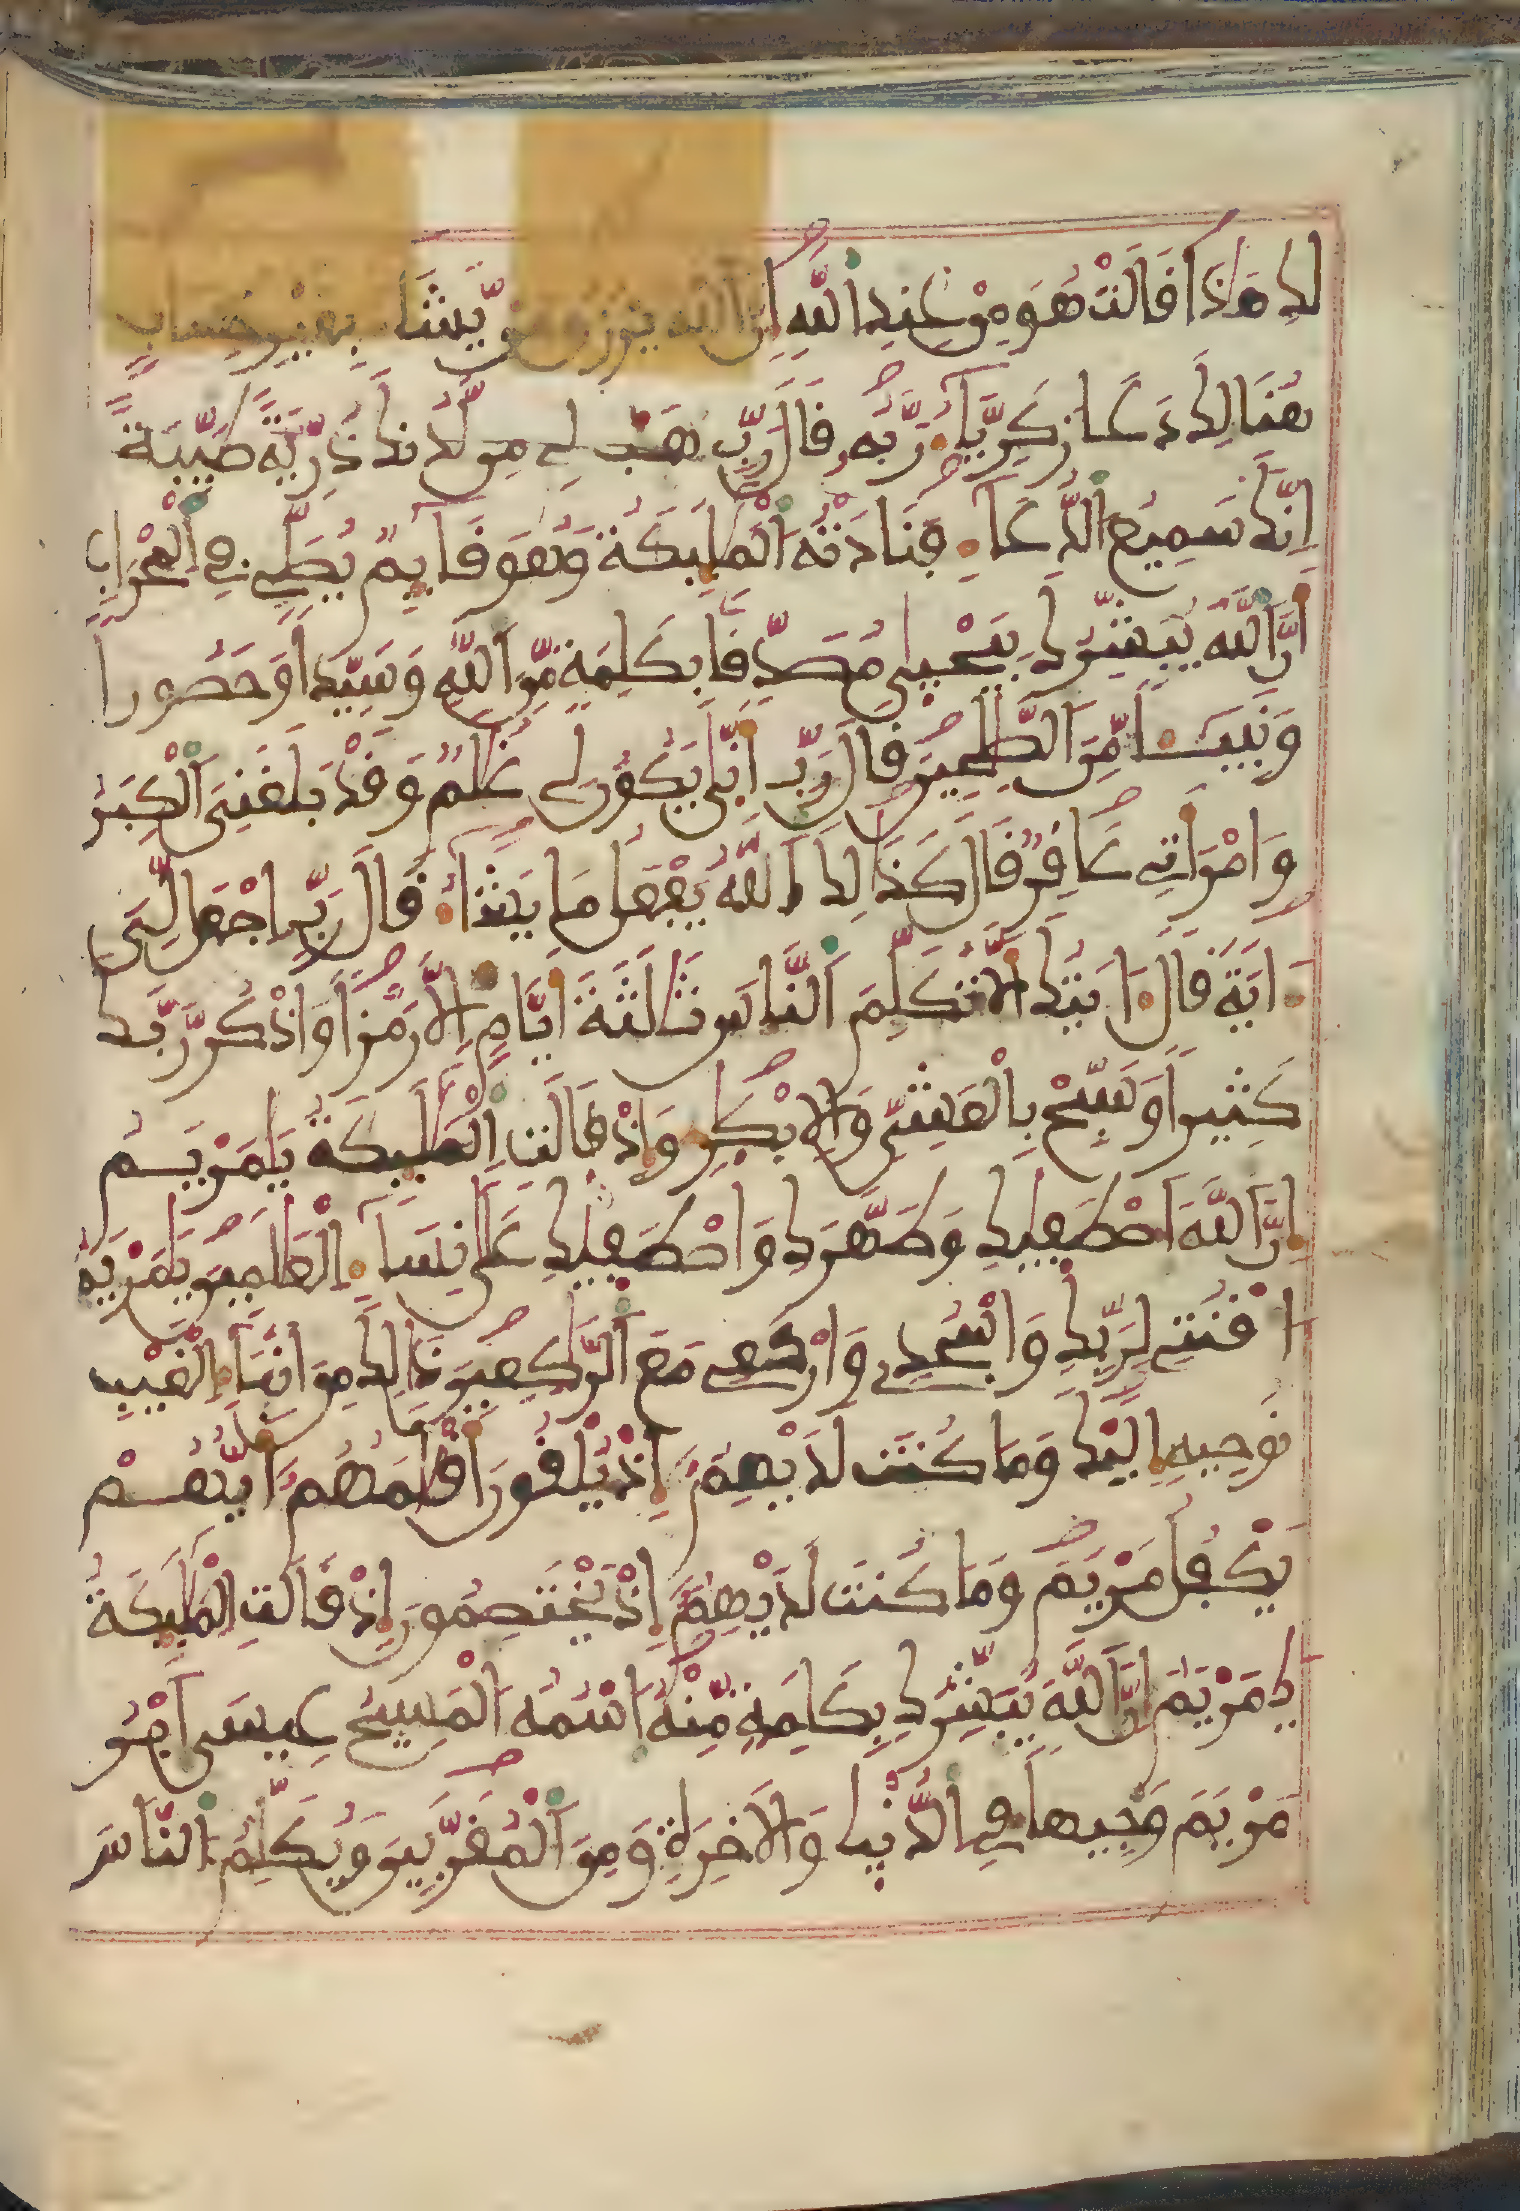 لك هٰذا قالت هو من عند الله إن الله يرزق من يشاء بغير حساب
هنالك دعا زكرياء ربه قال رب هب لي من لدنك ذرية طيبة
إنك سميع الدعاء فنادته الملئكة وهو قايم يصلي في المحراب
أن الله يبشرك بيحيى مصدقا بكلمة من الله وسيدا وحصورا
ونبيئا من الصلحين قال رب أنى يكون لي غلم وقد بلغني الكبر
وامرأتي عاقر قال كذلك الله يفعل ما يشاء قال رب اجعل لي
ءاية قال ءايتك ألا تكلم الناس ثلثة أيام إلا رمزا واذكر ربك
كثيرا وسبح بالعشي والإبكر وإذ قالت الملئكة يامريم
إن الله اصطفيك وطهرك واصطفيك على نساء العلمين يمريم
اقنتي لربك واسجدي واركعي مع الركعين ذلك من أنباء الغيب
نوحيه إليك وما كنت لديهم إذ يلقون أقلمهم أيهم
يكفل مريم وما كنت لديهم إذ يختصمون إذ قالت الملئكة
يمريم إن الله يبشرك بكلمة منه اسمه المسيح عيسى ابن
مريم وجيها في الدنيا والاخرة ومن المقربين ويكلم الناس